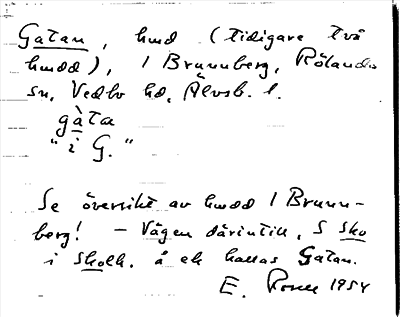 Gatan, hmd (tidigare två
hmdd), / Brunnberg, Rölanda
sn, Vedbo hd, Älvsb. l.
gàta
"i G."
Se översikt av hmdd / Brunn-
berg! – Vägen därintill, S sko
i skolh. å ek kallas Gatan.
E. 1954